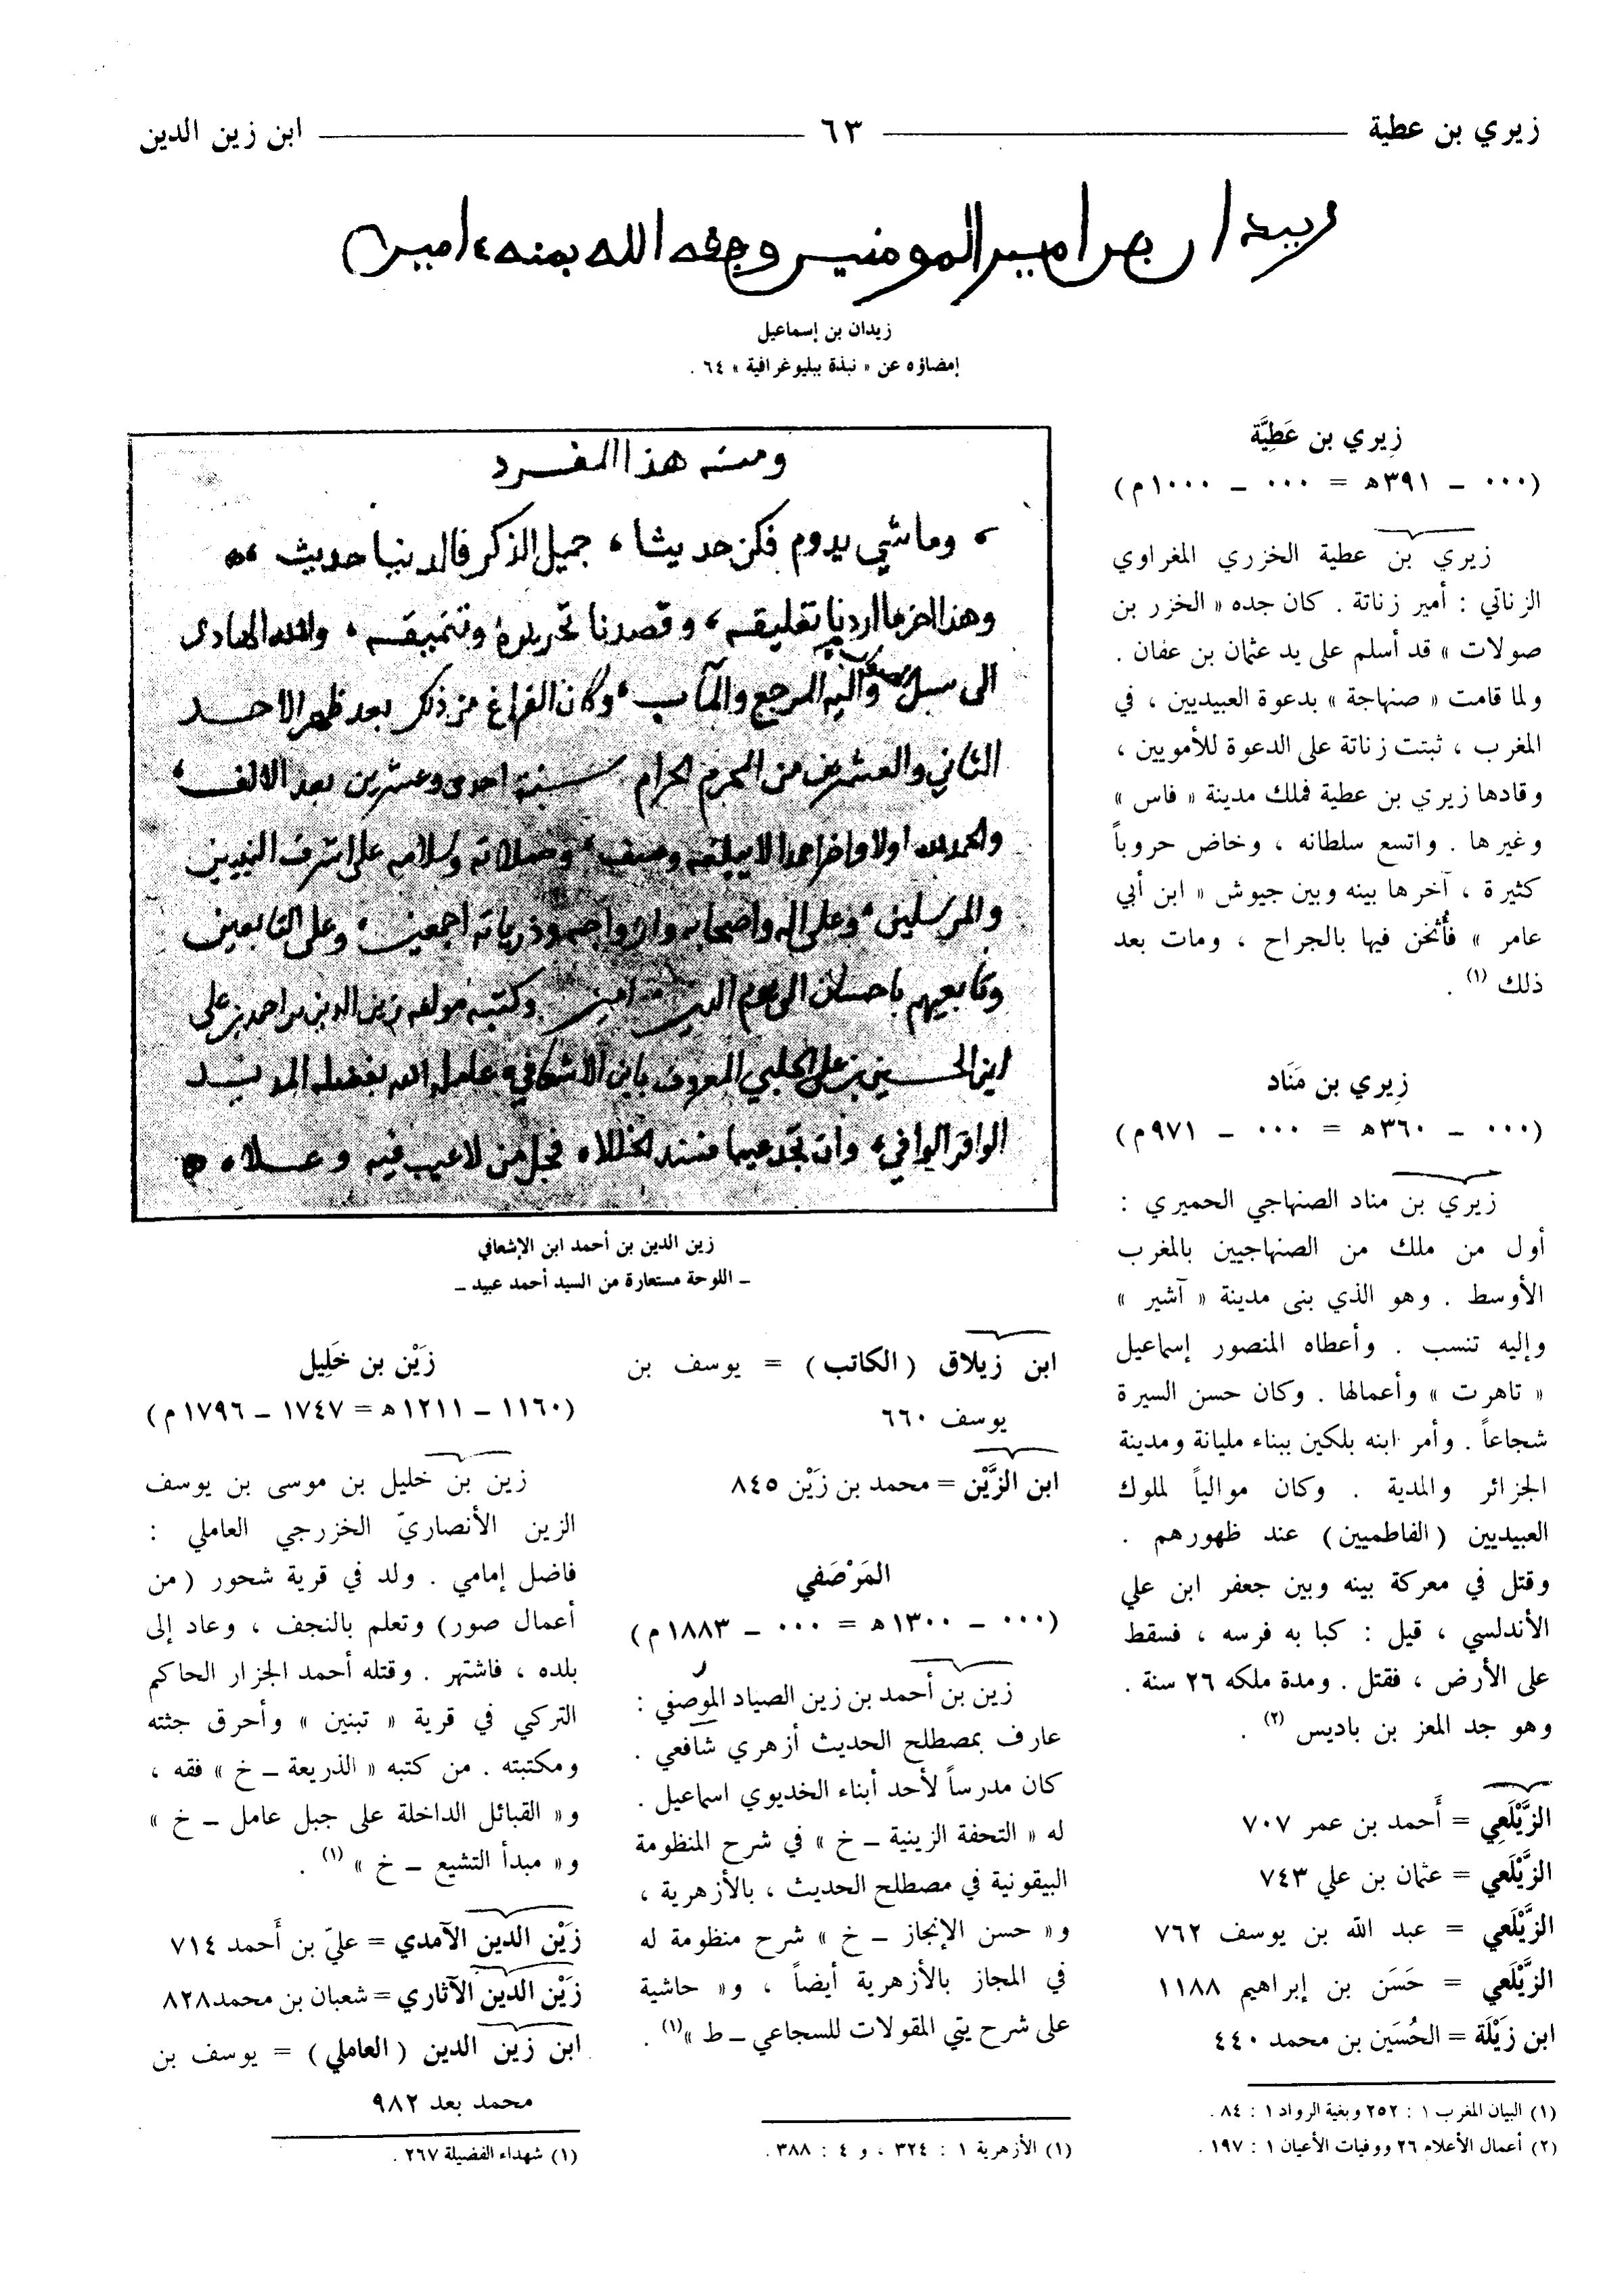 زيري بن عطية ٦٣ ابن زين الدين
زيدان بن امير المومنين وفقه الله بمنه ءامين
زيدان بن إسماعيل
إمضاؤه عن « نبذة ببليوغرافية » ٦٤ .
زِيري بن عَطِيَّة
(٠٠٠ ــ ٣٩١ه = ٠٠٠ ــ ١٠٠٠م)
زيري بن عطية الخزري المغراوي
الزناتي : أمير زناتة . كان جده « الخزر بن
صولات » قد أسلم على يد عثمان بن عفان .
ولما قامت « صنهاجة » بدعوة العبيديين ، في
المغرب ، ثبتت زناتة على الدعوة للأمويين ،
وقادها زيري بن عطية فملك مدينة « فاس »
وغيرها . واتسع سلطانه ، وخاض حروباً
كثيرة ، آخرها بينه وبين جيوش « ابن أبي
عامر » فأُثخن فيها بالجراح ، ومات بعد
ذلك (١) .
زِيري بن مَنَاد
(٠٠٠ ــ ٣٦٠ه = ٠٠٠ ــ ٩٧١م)
زيري بن مناد الصنهاجي الحميري :
أول من ملك من الصنهاجيين بالمغرب
الأوسط . وهو الذي بنى مدينة « آشير »
وإليه تنسب . وأعطاه المنصور إسماعيل
« تاهرت » وأعمالها . وكان حسن السيرة
شجاعاً . وأمر ابنه بلكين ببناء مليانة ومدينة
الجزائر والمدية . وكان موالياً لملوك
العبيديين (الفاطميين) عند ظهورهم .
وقتل في معركة بينه وبين جعفر ابن علي
الأندلسي ، قيل : كبا به فرسه ، فسقط
على الأرض ، فقتل . ومدة ملكه ٢٦ سنة .
وهو جد المعز بن باديس (٢) .
الزَّيْلَعِي = أَحمد بن عمر ٧٠٧
الزَّيْلَعي = عثمان بن علي ٧٤٣
الزَّيْلَعي = عبد الله بن يوسف ٧٦٢
الزَّيْلَعي = حَسَن بن إبراهيم ١١٨٨
ابن زَيْلَة = الحُسَين بن محمد ٤٤٠
(١) البيان المغرب ١ : ٢٥٢ وبغية الرواد ١ : ٨٤ .
(٢) أعمال الأعلام ٢٦ ووفيات الأعيان ١ : ١٩٧ .
ومنه هذا المفرد
، وما شيء يدوم فكن حديثا ، جميل الذكر فالدنيا حديث
وهذا اخر ما اردنا تعليقه ، وقصدنا تحريره وتنميقه ، والله الهادي
الى سبيل واليه المرجع والمآب ، وكان الفراغ من ذكر بعد ظهر الاحد
الثاني والعشرين من المحرم الحرام سنة احدى وعشرين بعد الالف ،
والحمد لله اولا واخرا حمدا لا يبلغه وصف ، وصلاته وسلامه على اشرف النبيين
والمرسلين ، وعلى اله واصحابه وازواجه وذرياته اجمعين ، وعلى التابعين
وتابعيهم باحسان الى يوم الدين امين وكتبه مولفه زين الدين بن احمد بن علي
ابن الحسين بن علي الحلبي المعروف بابن الاشعافي عامله الله بفضله المديد
الوافر الوافي ، وان تجد عيبا فسد الخللا ، فجل من لا عيب فيه وعلا ،
زين الدين بن أحمد ابن الإشعافي
ــ اللوحة مستعارة من السيد أحمد عبيد ــ
ابن زيلاق (الكاتب) = يوسف بن
يوسف ٦٦٠
ابن الزَّيْن = محمد بن زَيْن ٨٤٥
المَرْصَفي
(٠٠٠ ــ ١٣٠٠ه = ٠٠٠ ــ ١٨٨٣م)
زين بن أحمد بن زين الصياد المرصفي :
عارف بمصطلح الحديث أزهري شافعي .
كان مدرساً لأحد أبناء الخديوي اسماعيل .
له « التحفة الزينية ــ خ » في شرح المنظومة
البيقونية في مصطلح الحديث ، بالأزهرية ،
و« حسن الإنجاز ــ خ » شرح منظومة له
في المجاز بالأزهرية أيضاً ، و« حاشية
على شرح يتي المقولات للسجاعي ــ ط »(١) .
(١) الأزهرية ١ : ٣٢٤ ، و ٤ : ٣٨٨ .
زَيْن بن خَلِيل
(١١٦٠ ــ ١٢١١ه = ١٧٤٧ ــ ١٧٩٦م)
زين بن خليل بن موسى بن يوسف
الزين الأنصاريّ الخزرجي العاملي :
فاضل إمامي . ولد في قرية شحور (من
أعمال صور) وتعلم بالنجف ، وعاد إلى
بلده ، فاشتهر . وقتله أحمد الجزار الحاكم
التركي في قرية « تبنين » وأحرق جثته
ومكتبته . من كتبه « الذريعة ــ خ » فقه ،
و« القبائل الداخلة على جبل عامل ــ خ »
و« مبدأ التشيع ــ خ » (١) .
زَيْن الدين الآمدي = عليّ بن أَحمد ٧١٤
زَيْن الدين الآثاري = شعبان بن محمد ٨٢٨
ابن زين الدين (العاملي) = يوسف بن
محمد بعد ٩٨٢
(١) شهداء الفضيلة ٢٦٧ .